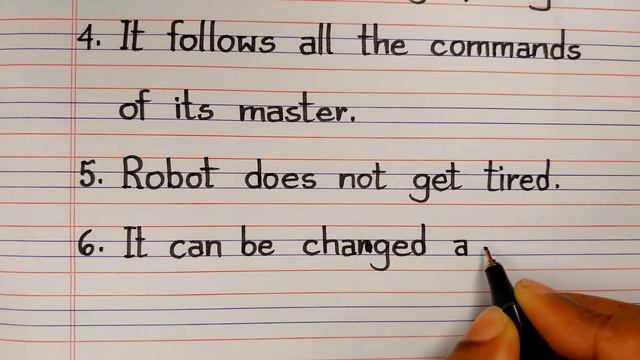 4. It follows all the commands
of its master.
5. Robot does not get tired.
6. It can be changed a